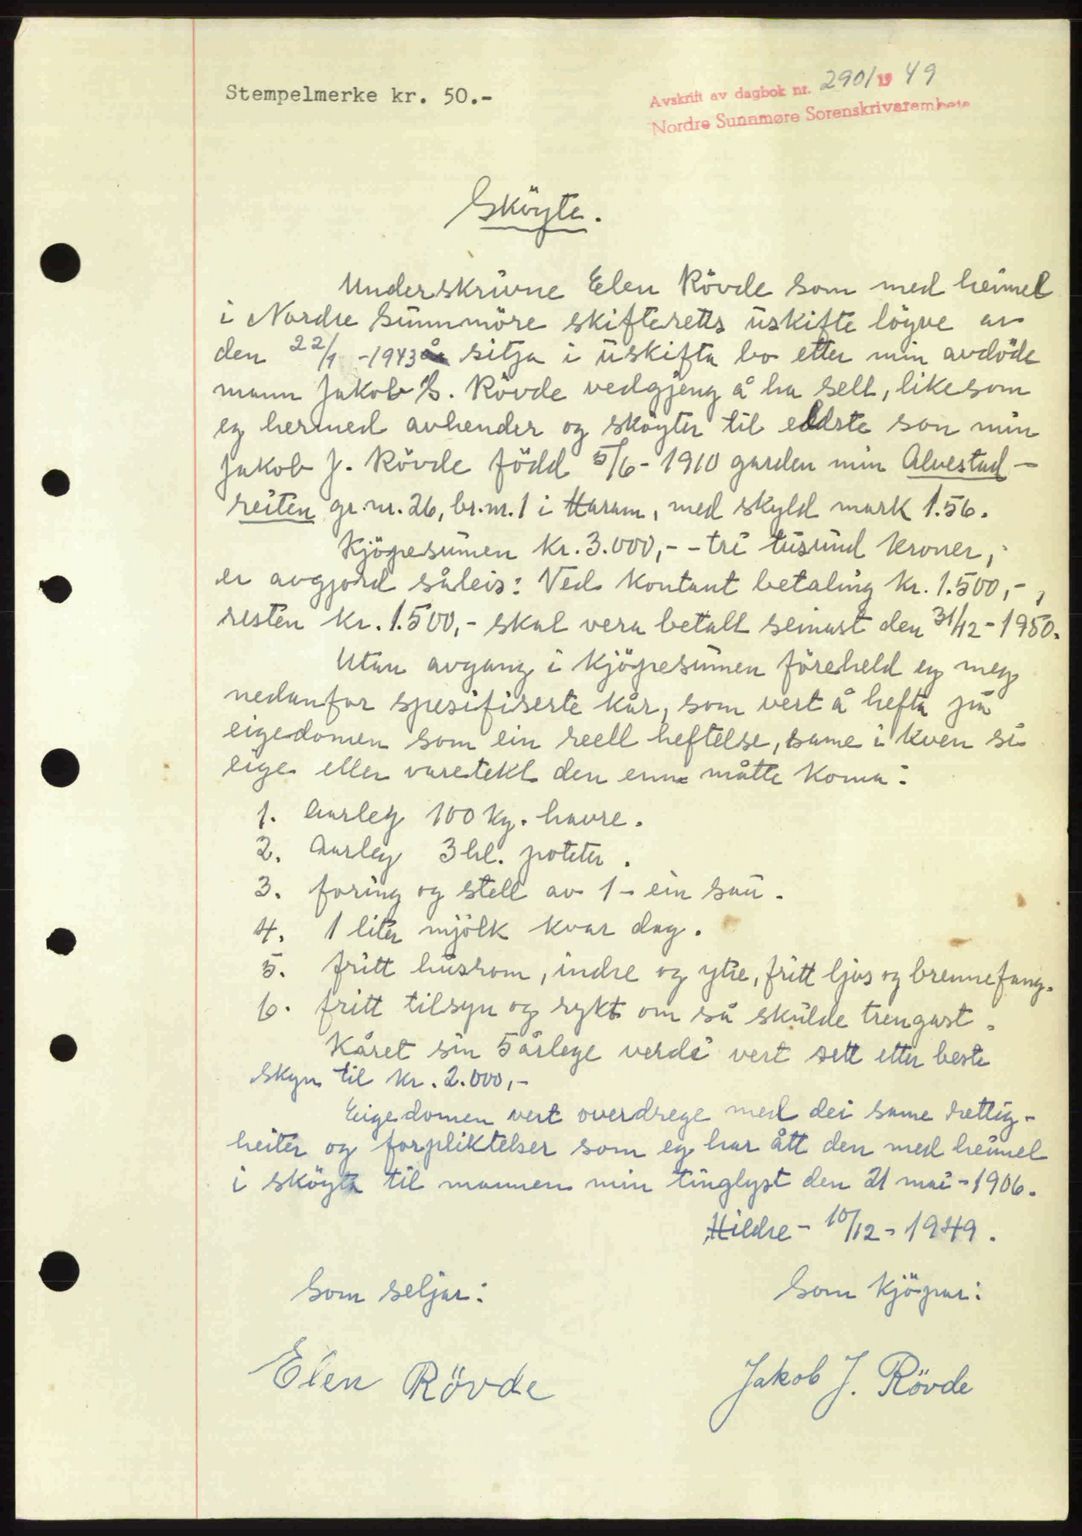 Stempelmerke kr. 50.-
Avskrift av dagbok nr. 2901 19 49
Nordre Sunnmøre Sorenskriverembete
Sköyte.
Underskrivne Elen Rövde som med heimel
i Nordre Sunnmöre skifteretts uskifte löyve av
den 22/1 -1943 å sitja i uskifta bo etter min avdöde
mann Jakob S. Rövde vedgjeng å ha selt, likesom
eg hermed avhender og sköyter til eldste son min
Jakob J. Rövde född 5/6 - 1910 garden min Alvestad-
reiten gr.nr. 26, br.nr. 1 i Haram, med skyld mark 1.56.
Kjöpesumen kr. 3.000,- - tri tusund kroner,
er avgjord såleis: Ved kontant betaling kr. 1.500,- ,
resten kr. 1.500,- skal vera betalt seinast den 31/12 - 1950.
Utan avgang i kjöpesumen föreheld eg meg
nedanfor spesifiserte kår, som vert å hefta på
eigedomen som ein reell heftelse, same i kven si
eige eller varetekt den enn måtte koma:
1. Aarleg 100 kg. havre.
2. Aarleg 3 hl. poteter.
3. foring og stell av 1 - ein sau.
4. 1 liter mjölk kvar dag.
5. fritt husrom, indre og ytre, fritt ljos og brennefang.
6. fritt tilsyn og rykt om så skulde trengast.
Kåret sin 5 årlege verdi vert sett etter beste
skyn til kr. 2.000,-
Eigedomen vert overdrege med dei same rettig-
heiter og forpliktelser som eg har ått den med heimel
i sköyte til mannen min tinglyst den 21 mai - 1906.
Hildre - 10/12 - 1949.
Som seljar:
Som kjöpar:
Elen Rövde
Jakob J. Rövde